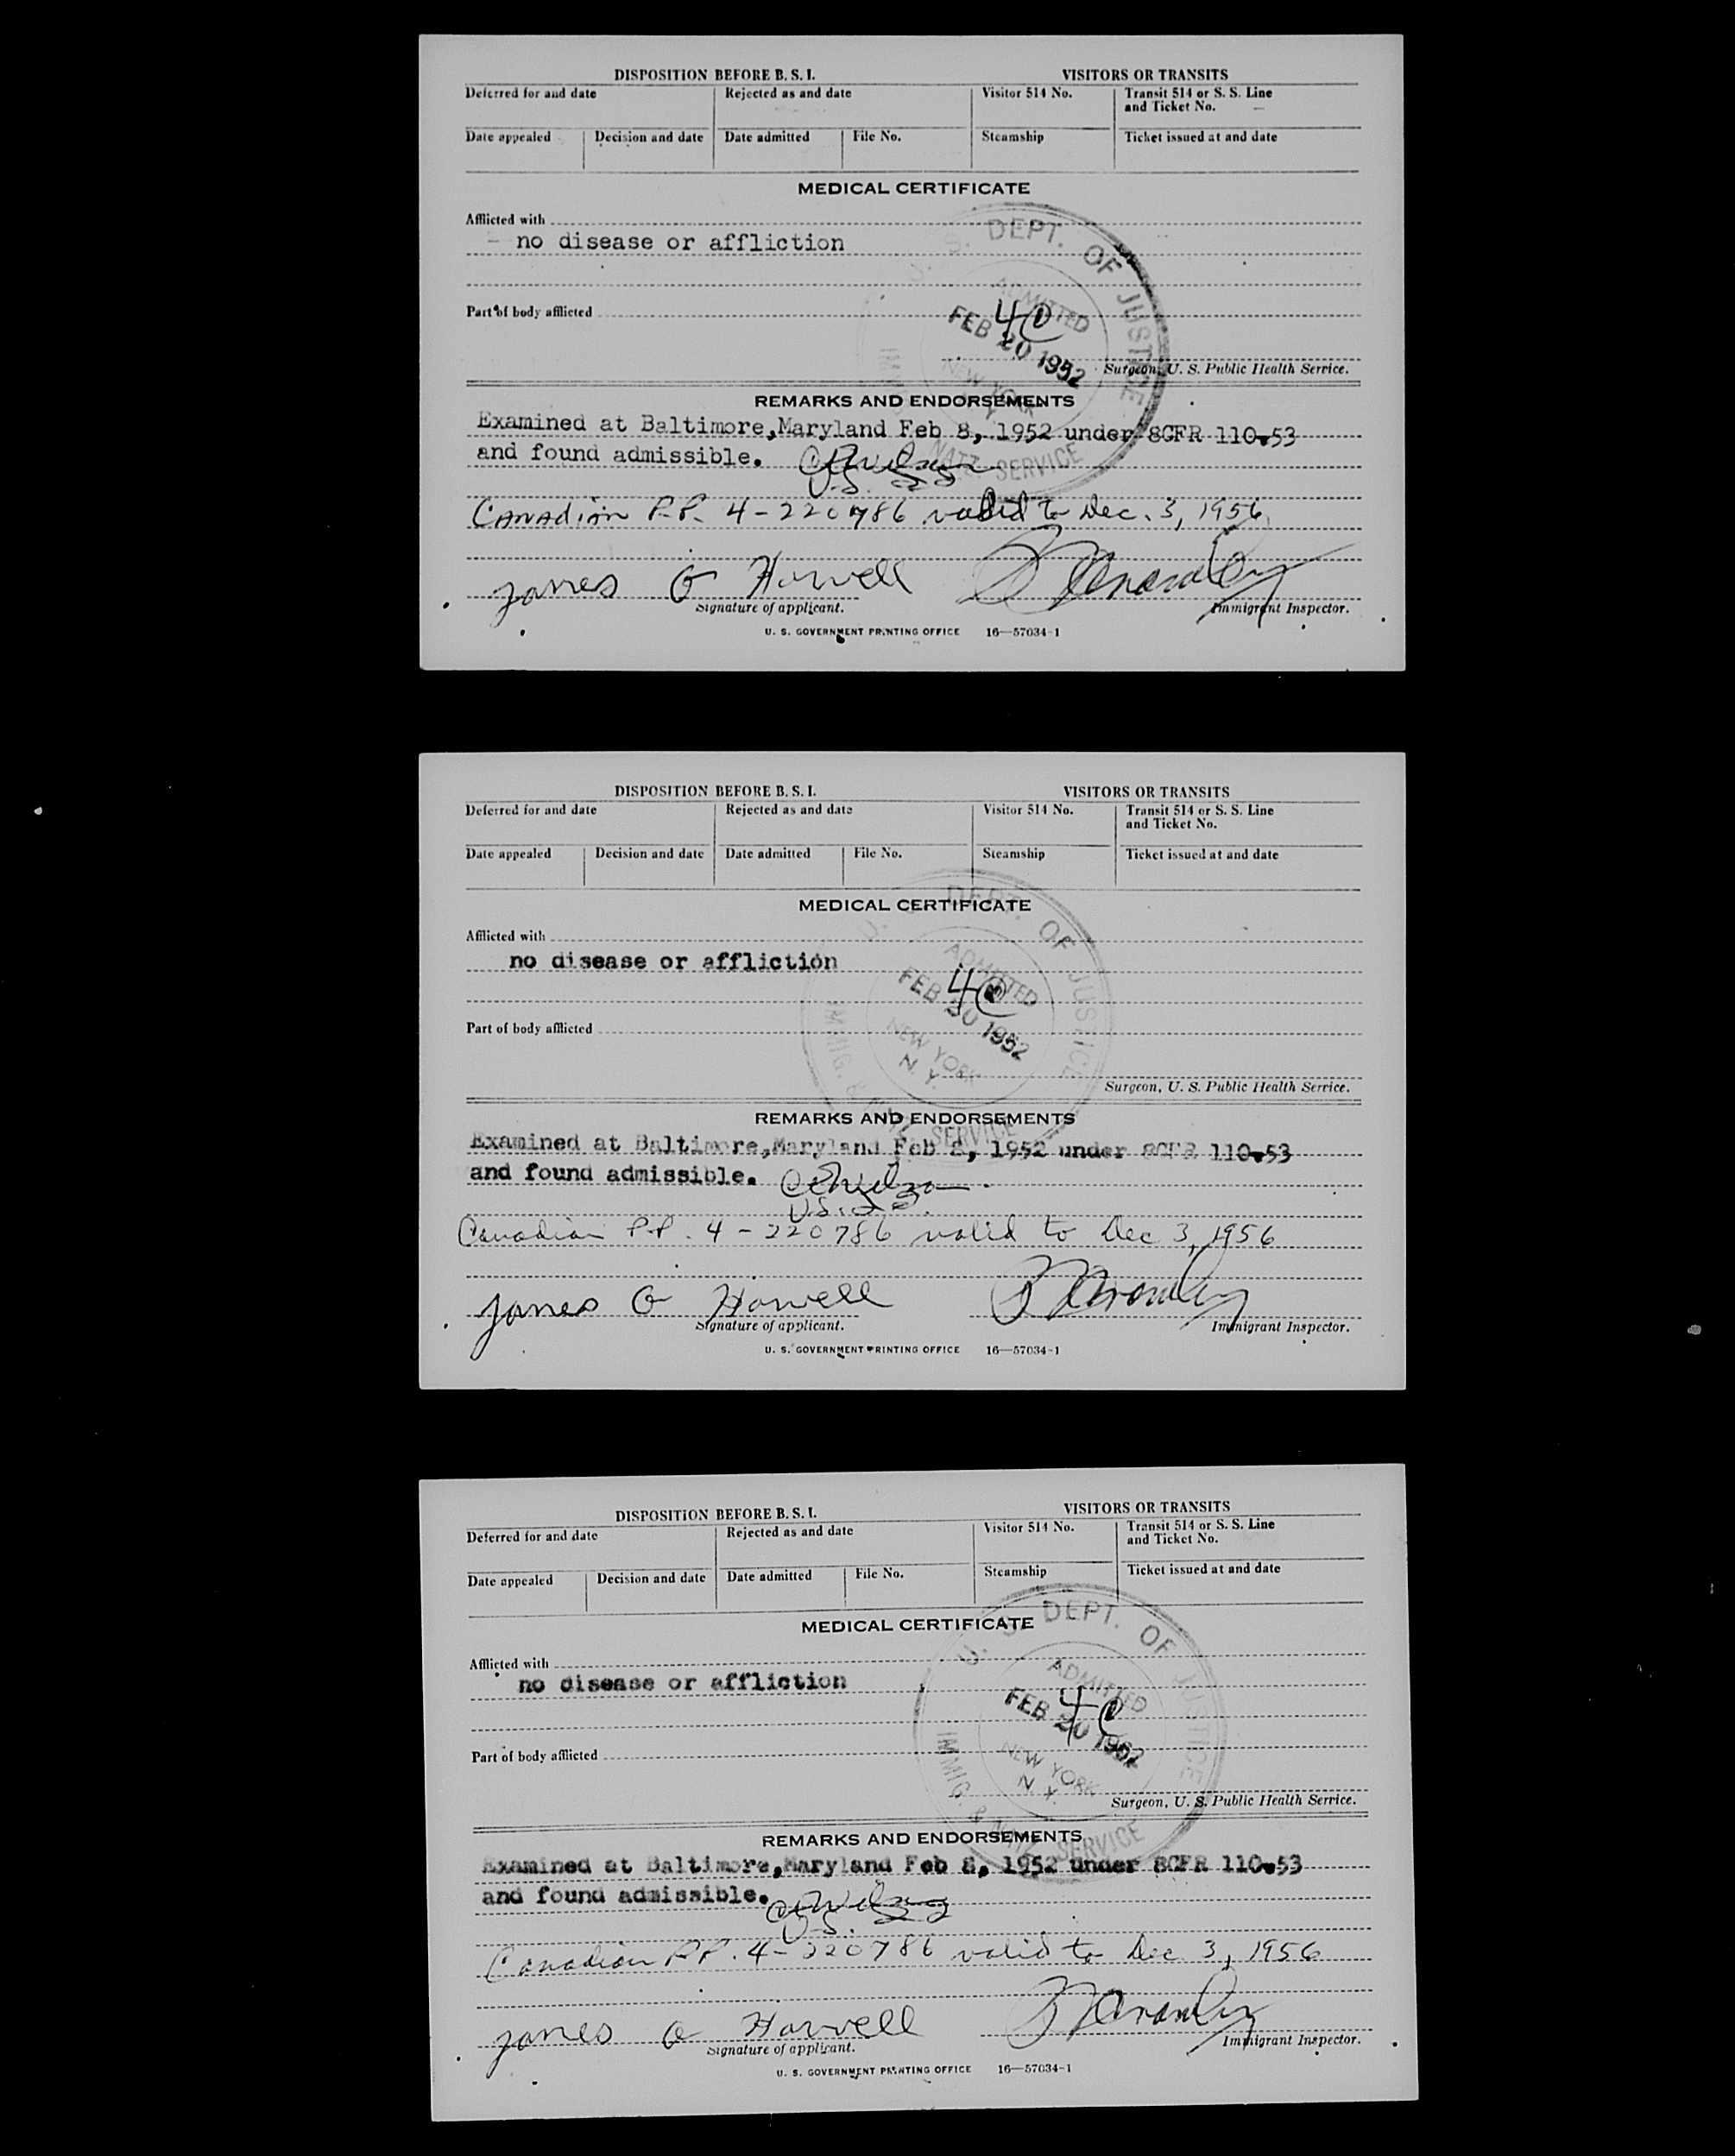 DISPOSITION BEFORE B. S. I. VISITORS OR TRANSITS
Deferred for and date Rejected as and date Visitor 514 No. Transit 514 or S. S. Line
and Ticket No.
Date appealed Decision and date Date admitted File No. Steamship Ticket issued at and date
MEDICAL CERTIFICATE
Afflicted with
no disease or affliction
Part of body afflicted
U. S. DEPT. OF JUSTICE
ADMITTED
40
FEB 20 1952
NEW YORK
N. Y.
IMMIG. & NATZ. SERVICE
Surgeon, U. S. Public Health Service.
REMARKS AND ENDORSEMENTS
Examined at Baltimore,Maryland Feb 8, 1952 under 8CFR 110.53
and found admissible.
Canadian P.P. 4-220786 valid to Dec. 3, 1956
James G Howell
Signature of applicant. Immigrant Inspector.
U. S. GOVERNMENT PRINTING OFFICE 16—57034-1
DISPOSITION BEFORE B. S. I. VISITORS OR TRANSITS
Deferred for and date Rejected as and date Visitor 514 No. Transit 514 or S. S. Line
and Ticket No.
Date appealed Decision and date Date admitted File No. Steamship Ticket issued at and date
MEDICAL CERTIFICATE
Afflicted with
no disease or affliction
Part of body afflicted
U. S. DEPT. OF JUSTICE
ADMITTED
FEB 20 1952
NEW YORK
N. Y.
IMMIG. & NATZ. SERVICE
Surgeon, U. S. Public Health Service.
REMARKS AND ENDORSEMENTS
Examined at Baltimore,Maryland Feb 8, 1952 under 8CFR 110.53
and found admissible.
Canadian P.P. 4-220786 valid to Dec 3, 1956
James G Howell
Signature of applicant. Immigrant Inspector.
U. S. GOVERNMENT PRINTING OFFICE 16—57034-1
DISPOSITION BEFORE B. S. I. VISITORS OR TRANSITS
Deferred for and date Rejected as and date Visitor 514 No. Transit 514 or S. S. Line
and Ticket No.
Date appealed Decision and date Date admitted File No. Steamship Ticket issued at and date
MEDICAL CERTIFICATE
Afflicted with
no disease or affliction
Part of body afflicted
U. S. DEPT. OF JUSTICE
ADMITTED
FEB 20 1952
NEW YORK
N. Y.
IMMIG. & NATZ. SERVICE
Surgeon, U. S. Public Health Service.
REMARKS AND ENDORSEMENTS
Examined at Baltimore,Maryland Feb 8, 1952 under 8CFR 110.53
and found admissible.
Canadian P.P. 4-220786 valid to Dec 3, 1956
James G Howell
Signature of applicant. Immigrant Inspector.
U. S. GOVERNMENT PRINTING OFFICE 16—57034-1